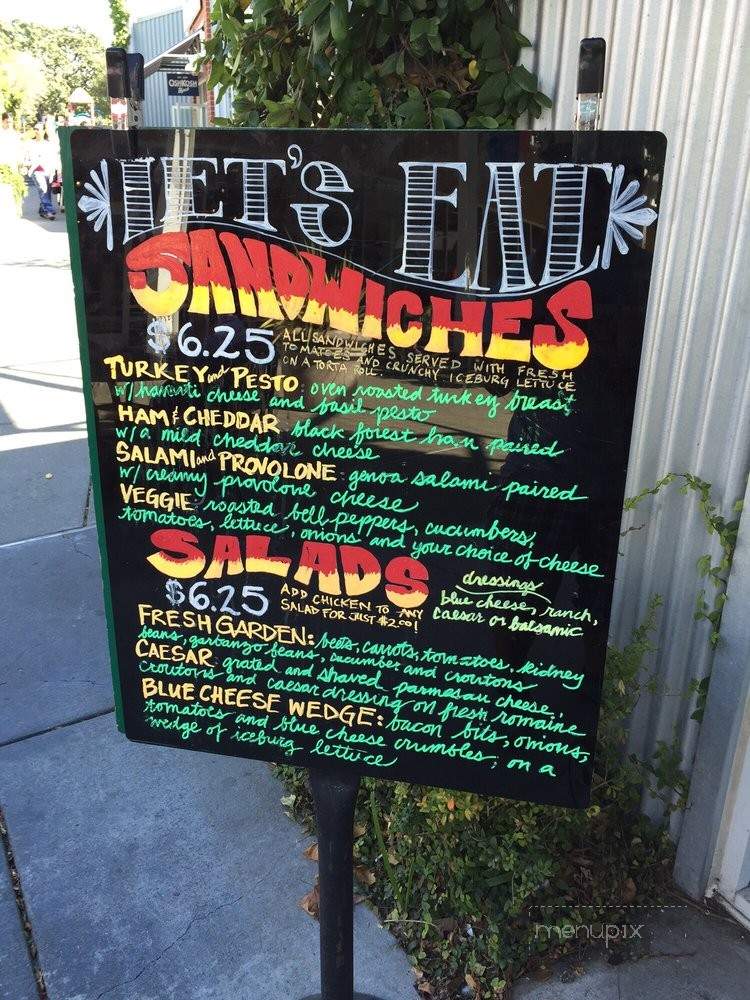 OSHKOSH
LET'S EAT
SANDWICHES
$6.25
ALL SANDWICHES SERVED WITH FRESH
TOMATOES AND CRUNCHY ICEBURG LETTUCE
ON A TORTA ROLL
TURKEY and PESTO: oven roasted turkey breast
w/ havarti cheese and basil pesto
HAM & CHEDDAR black forest ham paired
w/a mild cheddar cheese
SALAMI and PROVOLONE: genoa salami paired
w/ creamy provolone cheese
VEGGIE: roasted bell peppers, cucumbers,
tomatoes, lettuce, onions and your choice of cheese
SALADS
$6.25
ADD CHICKEN TO ANY
SALAD FOR JUST $2.00!
dressings
blue cheese, ranch,
caesar or balsamic
FRESH GARDEN: beets, carrots, tomatoes, kidney
beans, garbanzo beans, cucumber and croutons
CAESAR: grated and shaved parmesan cheese,
croutons and caesar dressing on fresh romaine
BLUE CHEESE WEDGE: bacon bits, onions,
tomatoes and blue cheese crumbles; on a
wedge of iceburg lettuce
menupix